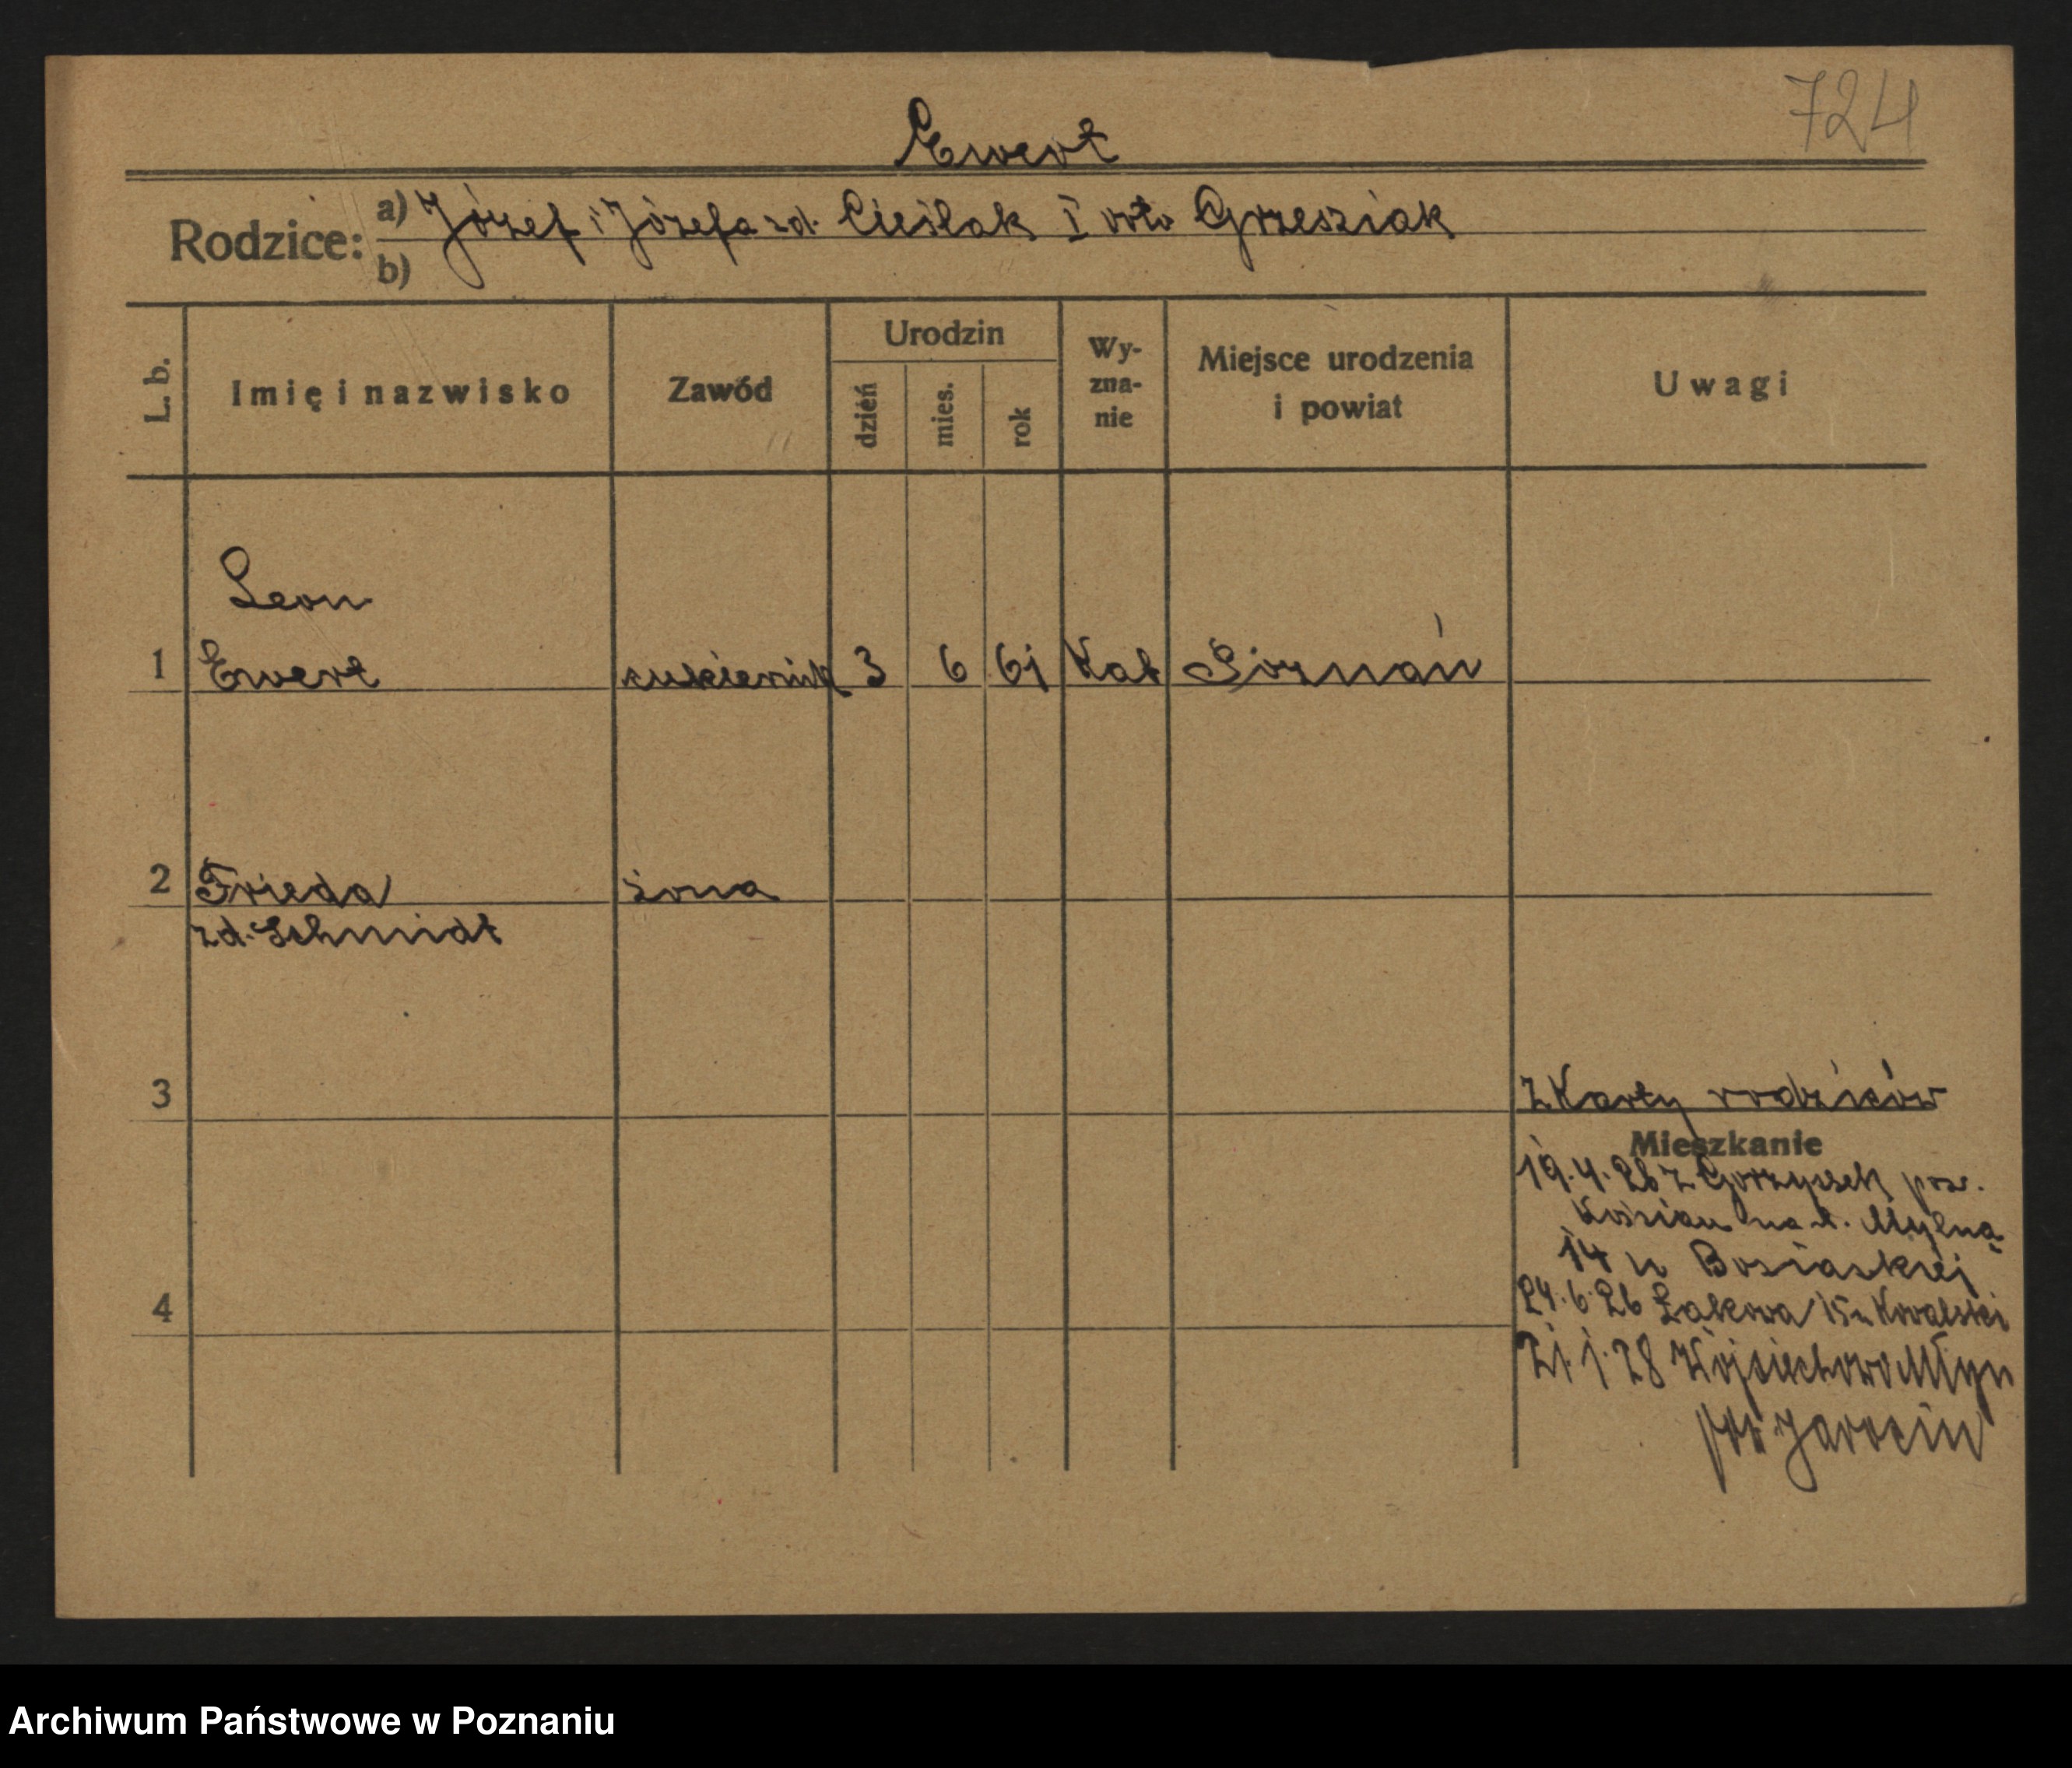 724
Ewert
Rodzice: a) Józef i Józefa zd. Cieślak I voto Grzesziak
b)
L. b. Imię i nazwisko Zawód Urodzin dzień mies. rok Wy-zna-nie Miejsce urodzenia i powiat Uwagi
Leon
1 Ewert cukiernik 3 6 61 Kat Poznań
2 Frieda żona
zd. Schmidt
3 z Karty rodziców
Mieszkanie
19.4.26 z pow.
Kościan na ul. Mylną
14 u
4 24.6.26 Łąkowa 15 u Kowalski
21.1.28 Wojciechowo Młyn
pow Jarocin
Archiwum Państwowe w Poznaniu